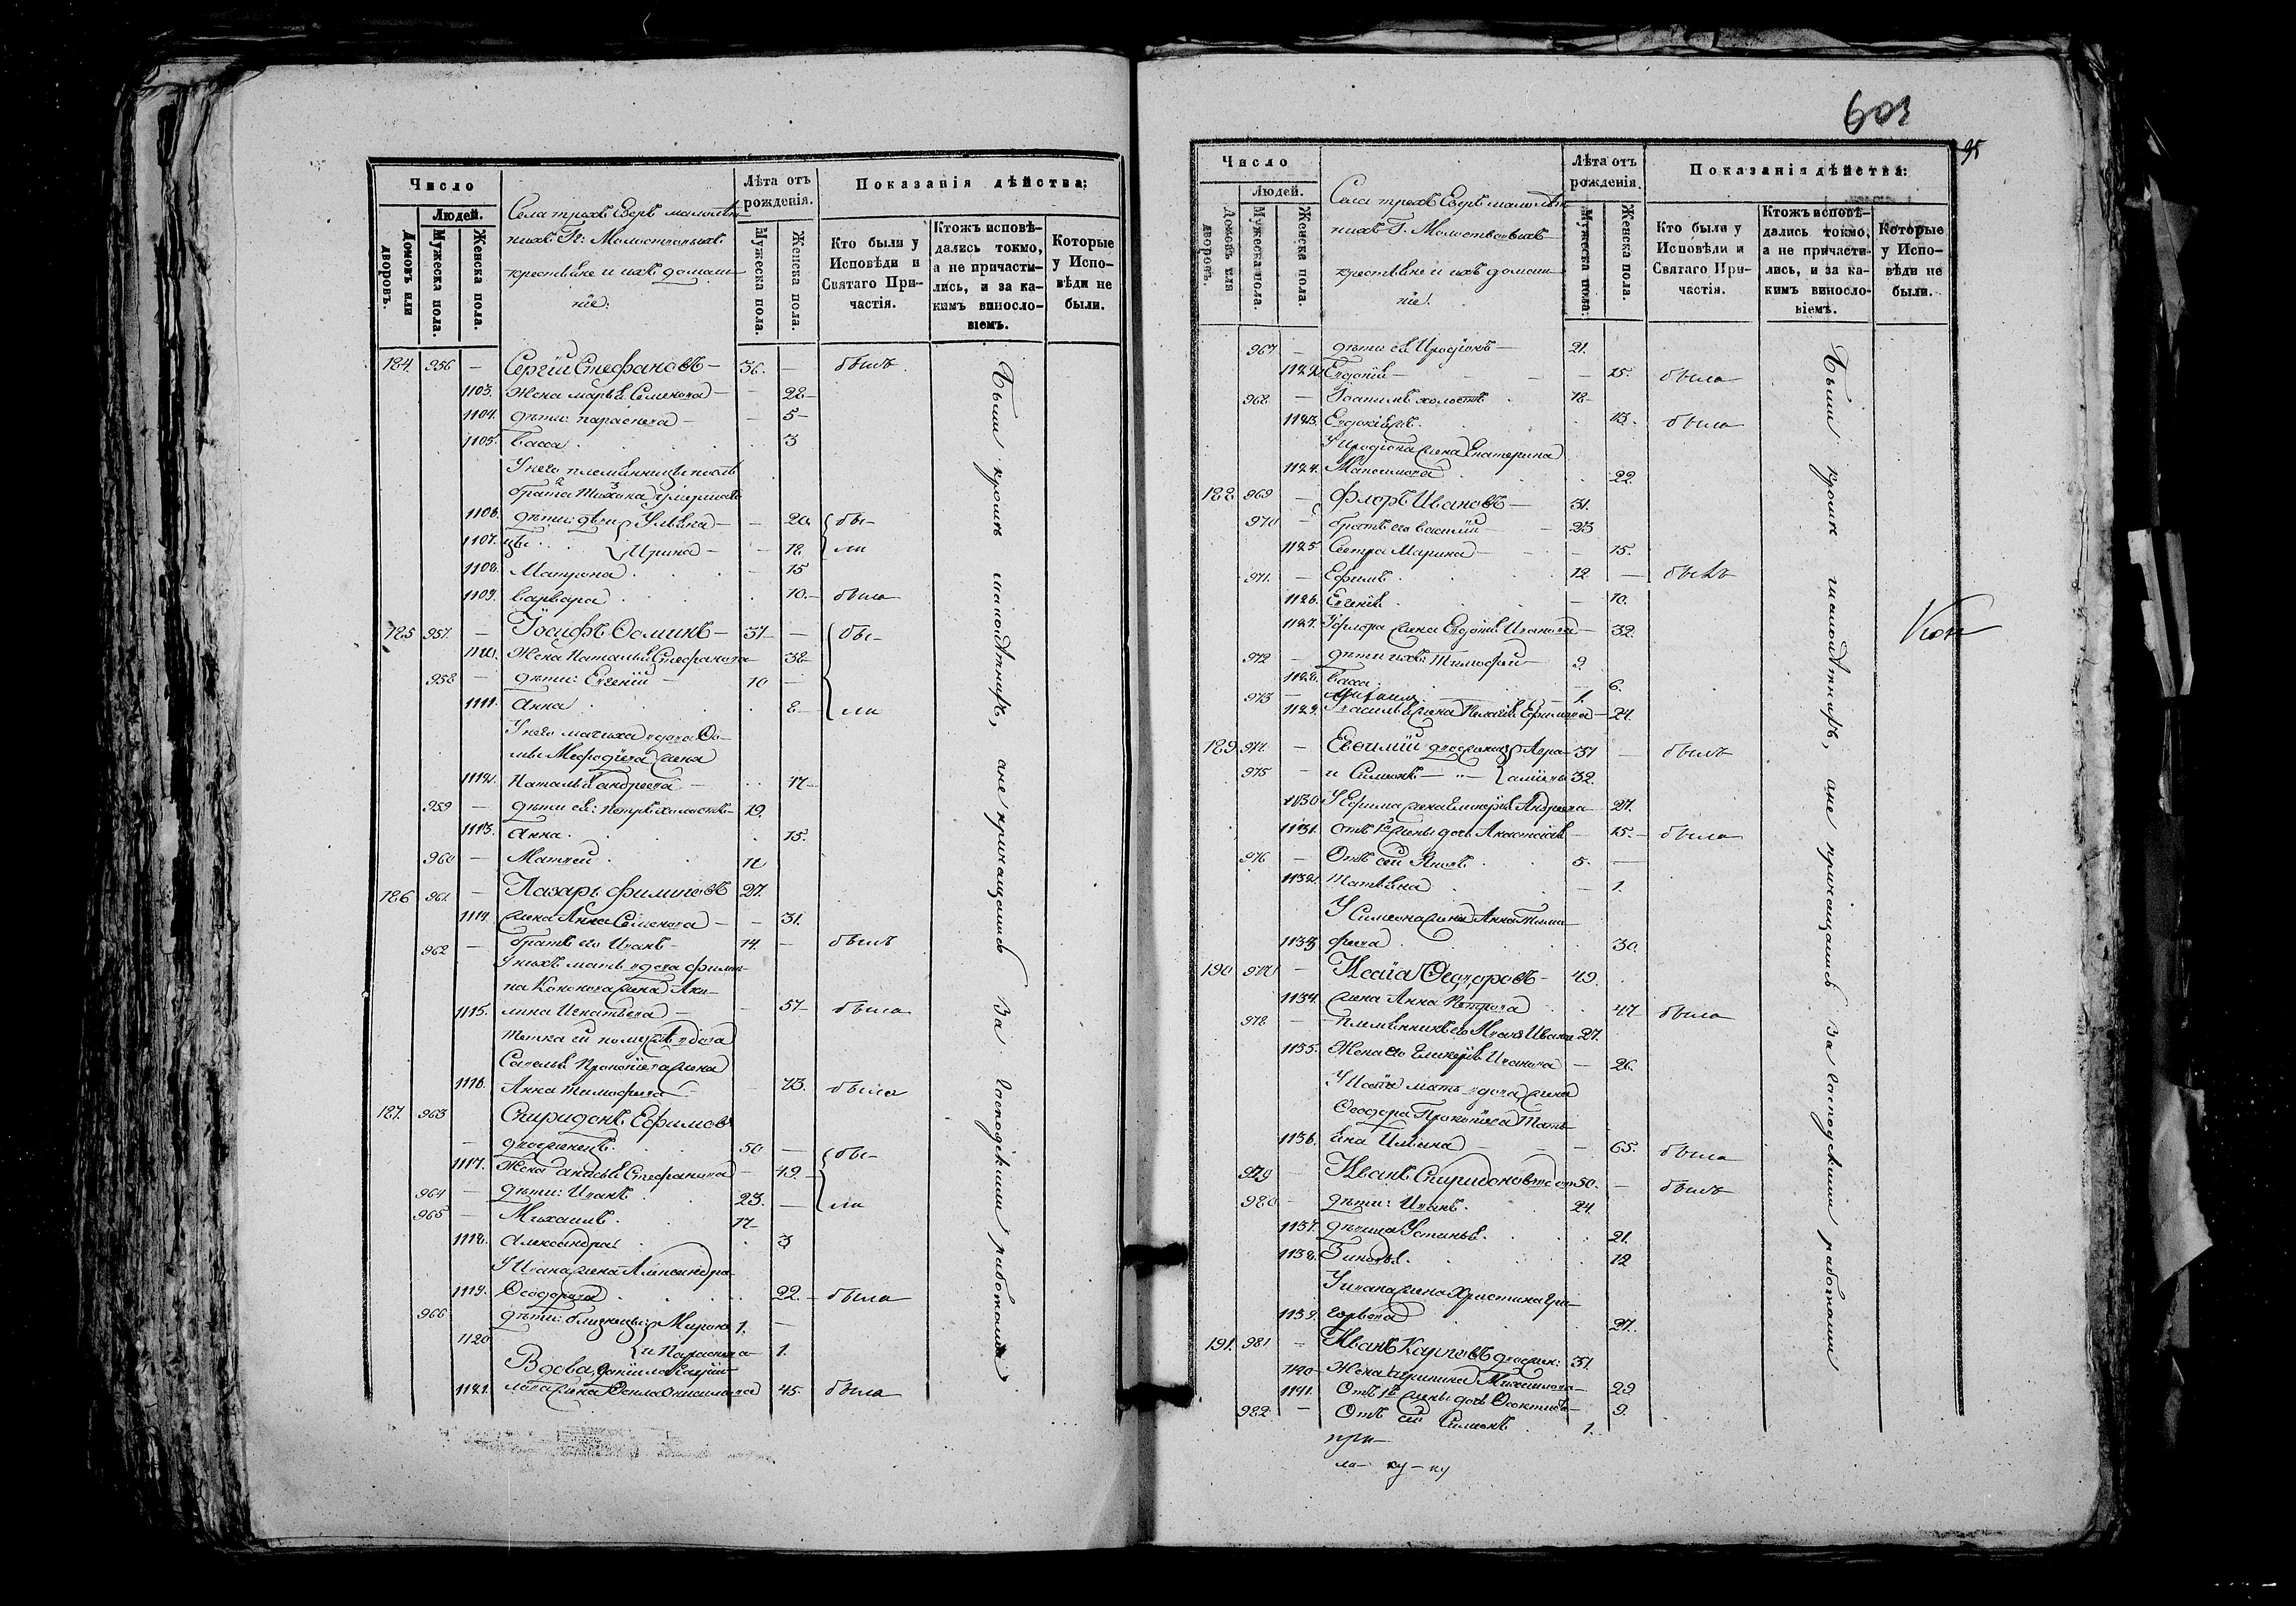 Число
Людей.
Домовъ или дворовъ.
Мужеска пола.
Женска пола.
Села трехъ Езеръ малолѣт-
нихъ Гг: Молоствовыхъ
крестьяне и ихъ домаш-
ніе:
Лѣта отъ рожденія.
Мужеска пола.
Женска пола.
Показанія дѣйства:
Кто были у Исповѣди и Святаго При-частія.
Ктожъ исповѣ-дались токмо, а не причасти-лись, и за ка-кимъ виносло-віемъ.
Которые у Испо-вѣди не были.
184. 956 — Сергій Стефановъ — 36. — былъ
1103. Жена Марья Семенова — — 28 —
1104. дѣти: Параскева — — 5 —
1105. Васса 3
У него племянницы послѣ
брата Тихона умершаго
1106. дѣти: дѣви Ульяна — — 20. бы-
1107. цы Ирина — — 18 ли
1108. Матрона — 15
1109. Варвара 10. — была
185 957. — Іосифъ Ѳоминъ — 37 — бы-
1110. Жена Наталья Стефанова 38
958 — дѣти: Евгеній — 10 —
1111. Анна 8 — ли
У него мачиха вдова Ѳо-
мы Меѳодіева жена
1112. Наталья Андреева —
959 — дѣти ея: Петръ холостъ — 19.
1113. Анна 15.
960 — Матвей 12
186 961. — Лазарь Филиповъ 27.
1114. жена Анна Семенова — — 31.
962 — братъ его Иванъ — 14. — былъ
У нихъ мать вдова Филип-
па Кононова жена Аки-
1115. лина Игнатьева — — 57 — была
тетка ей по мужѣ вдова
Савелья Прокопіева жена
1116. Анна Тимофеева — — 73. была
187. 963 Спиридонъ Ефимовъ
— дворжецъ 50 — бы-
1117. Жена Анисья Стефанова — 49 —
964 — дѣти: Иванъ 23. — ли
965 — Михаилъ 17 —
1118. Александра 3
У Ивана жена Александра
1119. Ѳеодорова 22. — была
966 дѣти: близнецы Миронъ 1. —
1120 и Параскева — 1.
Вдова Даніила
1121. лова жена Ѳекла 45. была
Были кромѣ малолѣтнихъ, а не причащались за господскими работами
603
95
Число
Людей.
Домовъ или дворовъ.
Мужеска пола.
Женска пола.
Села трехъ Езеръ малолѣт-
нихъ Г. Молоствовыхъ
крестьяне и ихъ домаш-
ніе:
Лѣта отъ рожденія.
Мужеска пола.
Женска пола.
Показанія дѣйства:
Кто были у Исповѣди и Святаго При-частія.
Ктожъ исповѣ-дались токмо, а не причасти-лись, и за ка-кимъ виносло-віемъ.
Которые у Испо-вѣди не были.
967 — дѣти ея Иродіонъ — 21.
1122. Евдокія — — — 15. была
968 — Іоакимъ холостъ 18 —
1123. Евдокія 13. была
У Иродіона жена Екатерина
1124. Максимова 22.
188 969 — Флоръ Ивановъ — 31.
970 — братъ его Василій — — 23
1125. Сестра Марина — — — 15.
971. — Ефимъ 12 — былъ
1126. Евгенія — 10.
1127. У Флора жена Евдокія Иванова — 32.
972 — дѣти ихъ Тимофей — 9
1128. Васса — 6.
973 — 1.
1129. У Василья жена Пелагія Ефимова — 24.
189 974. — Евфимій Авра- 37 — былъ
975 — и Симеонъ — „ — амовы 32.
1130 У Ефима жена Гликерія Андреева 27.
1131. отъ 1й жены дочь Анастасія — 15. — была
976 — Отъ сей Яковъ 5. —
1132. Татьяна — 1.
У Симеона жена Анна Тимо-
1133 феева 30.
190 977 — Исаія Ѳедоровъ — 49.
1134. жена Анна Петрова 47 была
978 — — Племянникъ его Иванъ Ивановъ 27.
1135. Жена его Гликерія Иванова — — 26.
У Исаіи мать вдова жена
Ѳеодора Прокопіева Тать-
1136. яна Ильина — — 65. была
979 Иванъ Спиридоновъ 50. — былъ
980 — дѣти: Иванъ 24.
1137. дѣвица Устинья 21.
1138. Зиновья 12
У Ивана жена Христина Гри-
1139. горьева 27.
191. 981 — Иванъ Карповъ 37.
1140 — Жена Ирина Михайлова — 29
1141. Отъ 1й жены дочь Ѳеоктиста — 9.
982 — Отъ сей Симеонъ 1.
Были кромѣ малолѣтнихъ, а не причащались за господскими работами